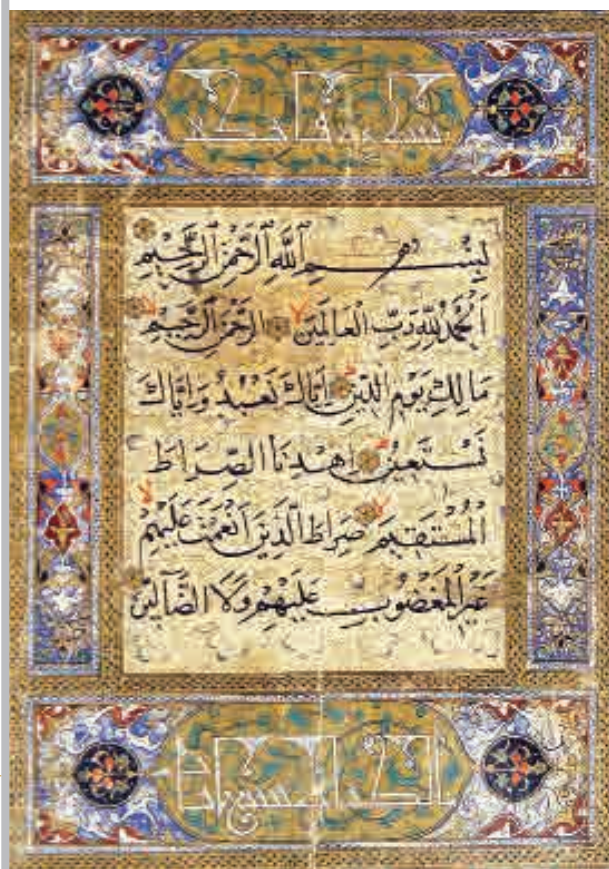 بِسْمِ ٱللَّهِ ٱلرَّحْمَٰنِ ٱلرَّحِيمِ
ٱلْحَمْدُ لِلَّهِ رَبِّ الْعَالَمِينَ ۝ الرَّحْمَٰنِ ٱلرَّحِيمِ
مَالِكِ يَوْمِ الدِّينِ ۝ اِيَّاكَ نَعْبُدُ وَاِيَّاكَ
نَسْتَعِينُ ۝ اِهْدِنَا الصِّرَاطَ
الْمُسْتَقِيمَ ۝ صِرَاطَ الَّذِينَ اَنْعَمْتَ عَلَيْهِمْ
غَيْرِ الْمَغْضُوبِ عَلَيْهِمْ وَلَا الضَّآلِّينَ